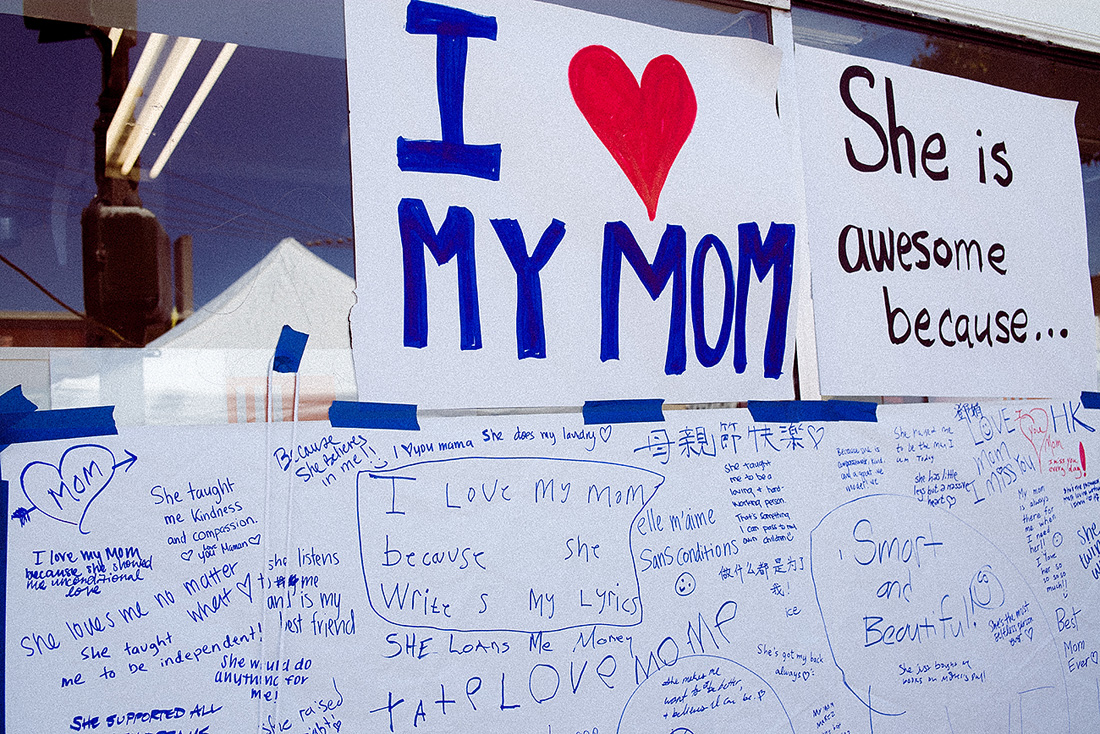 I ♥
MY MOM
She is
awesome
because...
MOM
I love my MOM
because she showed
me unconditional
love
She taught
me Kindness
and compassion.
♡ love ♡
you Maman
She loves me no matter
what ♡
She taught
me to be independent!
She would do
anything for
me!
SHE SUPPORTED ALL
Because
She Believes
in me!!
she listens
to me
and is my
best friend
She raised
I ♥ you mama She does my laundry ♡
I Love My Mom
because She
Write s My Lyrics
SHE Loans Me Money
TATE LOVE MOM
母親節快樂♡
elle m'aime
sans conditions
She taught
me to be a
loving & hard-
working person
That's something
I can pass to my
own children
做什么都是为了
我!
ice
She's got my back
always ♡
she makes me
want to be better,
& believes I can be.
She raised me
to be the man I
am Today
she has little
legs but a massive
heart ♡
LOVE
HK
Mom
I miss You
love
you
Mom
I miss you,
every day!
My mom
is always
there for
me when
I need
her!!
I love
her so
so so so
much!!
Smart
and
Beautiful!
She's the most
selfless person
She just
Best
Mom
Ever ♡
She